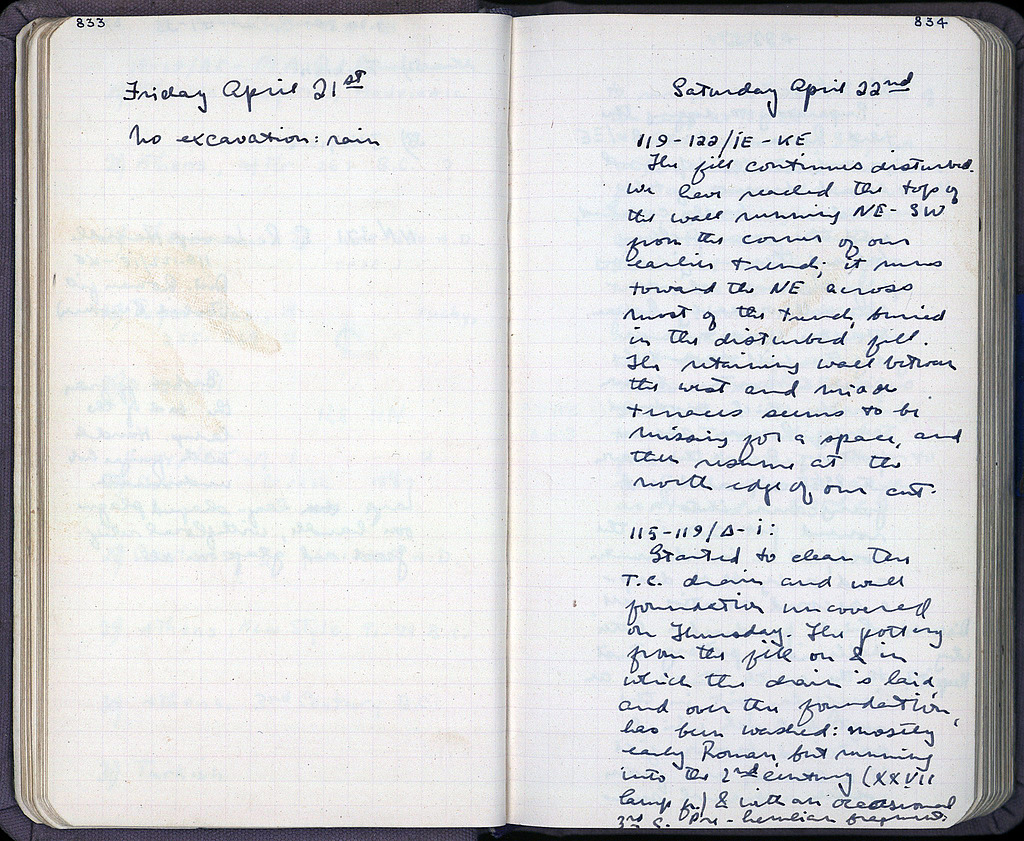 833
Friday April 21st
No excavation: rain
834
Saturday April 22nd
119-122/ΙΕ - ΚΕ
The fill continues disturbed.
We have reached the top of
the wall running NE-SW
from the corner of our
earlier trench; it runs
toward the NE across
most of the trench, buried
in the disturbed fill.
The retaining wall between
the west and middle
terraces seems to be
missing for a space, and
then resume at the
north edge of our cut.
115-119/Δ-Ι:
Started to clean the
T.C. drain and wall
foundation uncovered
on Thursday. The pottery
from the fill on & in
which the drain is laid,
and over the foundation,
has been washed: mostly
early Roman, but running
into the 2nd century (XXVII
lamp fr.) & with an occasional
3rd c. Pre-herulian fragment.